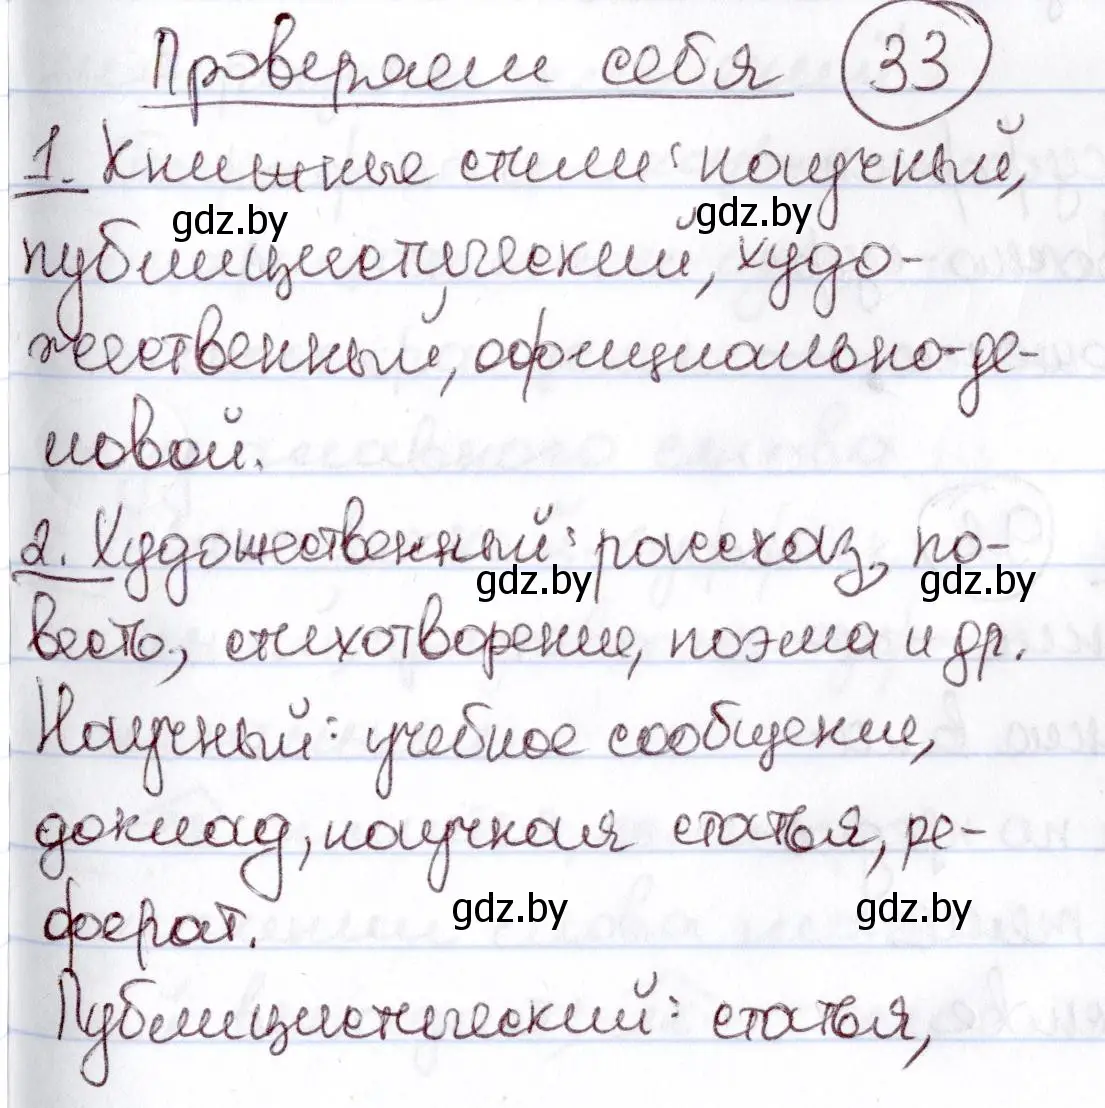 Проверяем себя 33
1. Книжные стили: научный,
gdz.by gdz.by
публицистический, худо-
жественный, официально-де-
ловой.
2. Художественный: рассказ, по-
gdz.by gdz.by
весть, стихотворение, поэма и др.
Научный: учебное сообщение,
доклад, научная статья, ре-
gdz.by gdz.by
ферат.
Публицистический: статья,